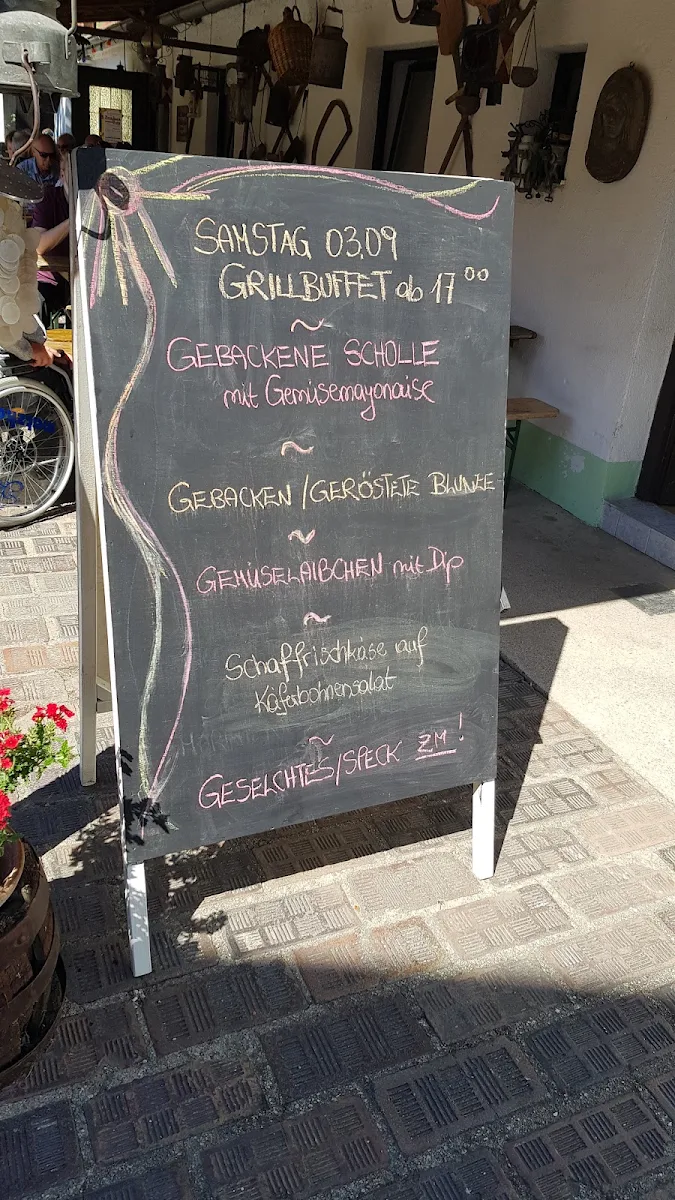 SAMSTAG 03.09
GRILLBUFFET ab 17⁰⁰
~
GEBACKENE SCHOLLE
mit Gemüsemayonaise
~
GEBACKEN/GERÖSTETE BLUNZE
~
GEMÜSELAIBCHEN mit Dip
~
Schaffrischkäse auf
Käferbohnensalat
~
GESELCHTES/SPECK ZM!